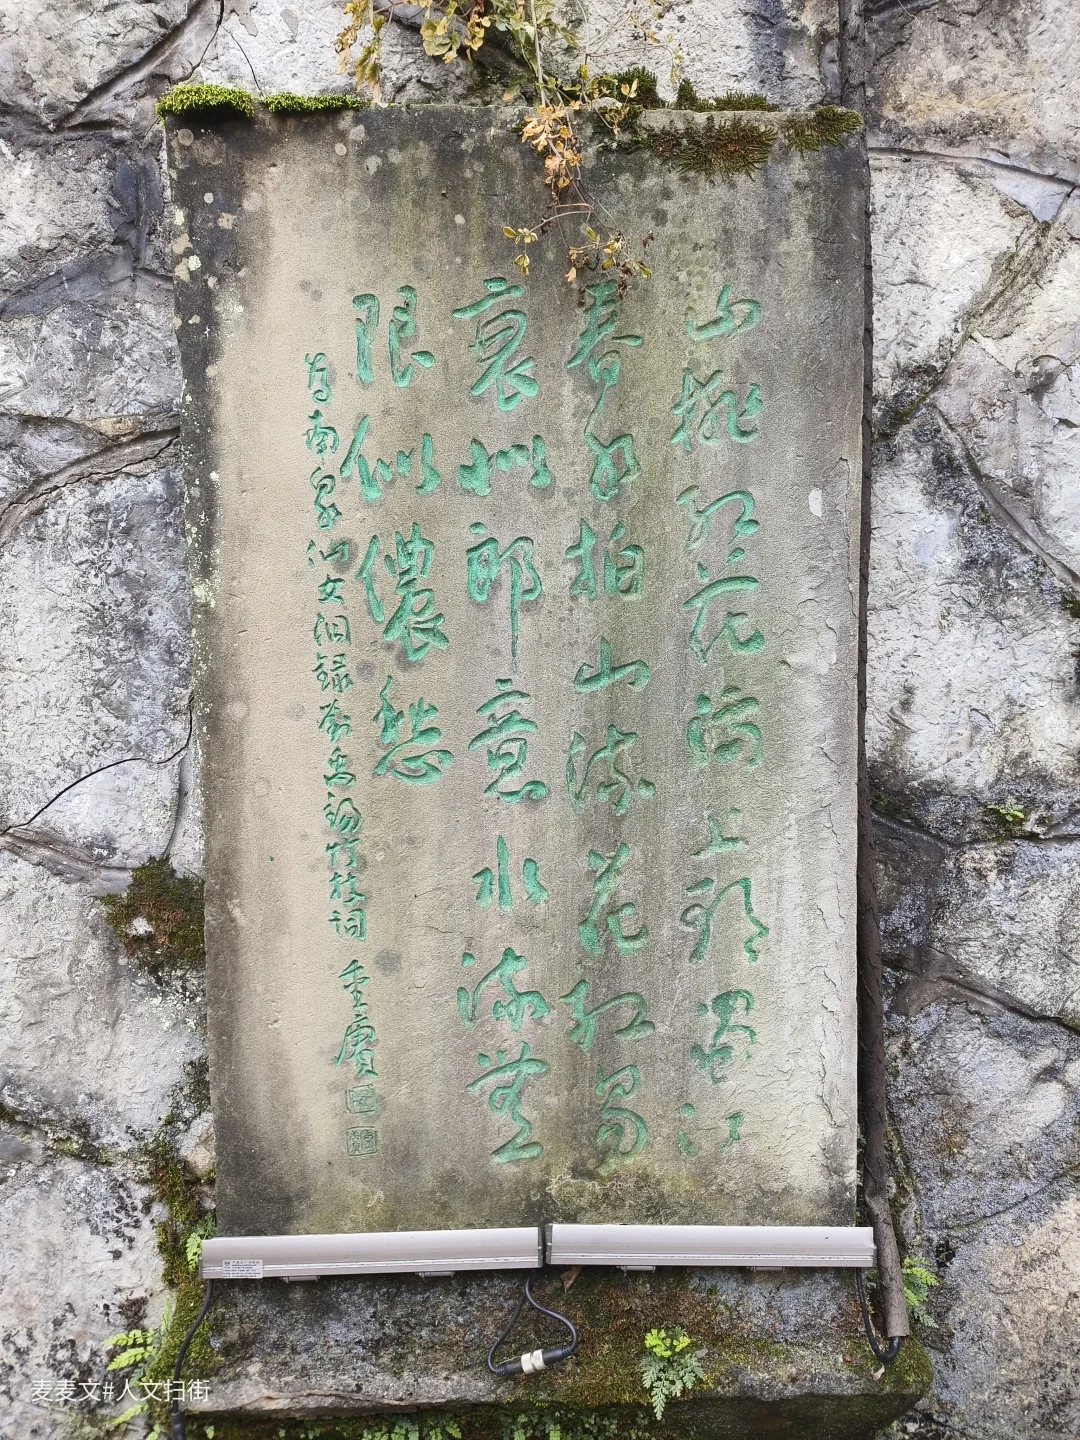 山桃红花满上头蜀江
春水拍山流花红易
衰似郎意水流無
限似儂愁
为南泉仙女洞録刘禹锡竹枝词 重
麦麦文#人文扫街